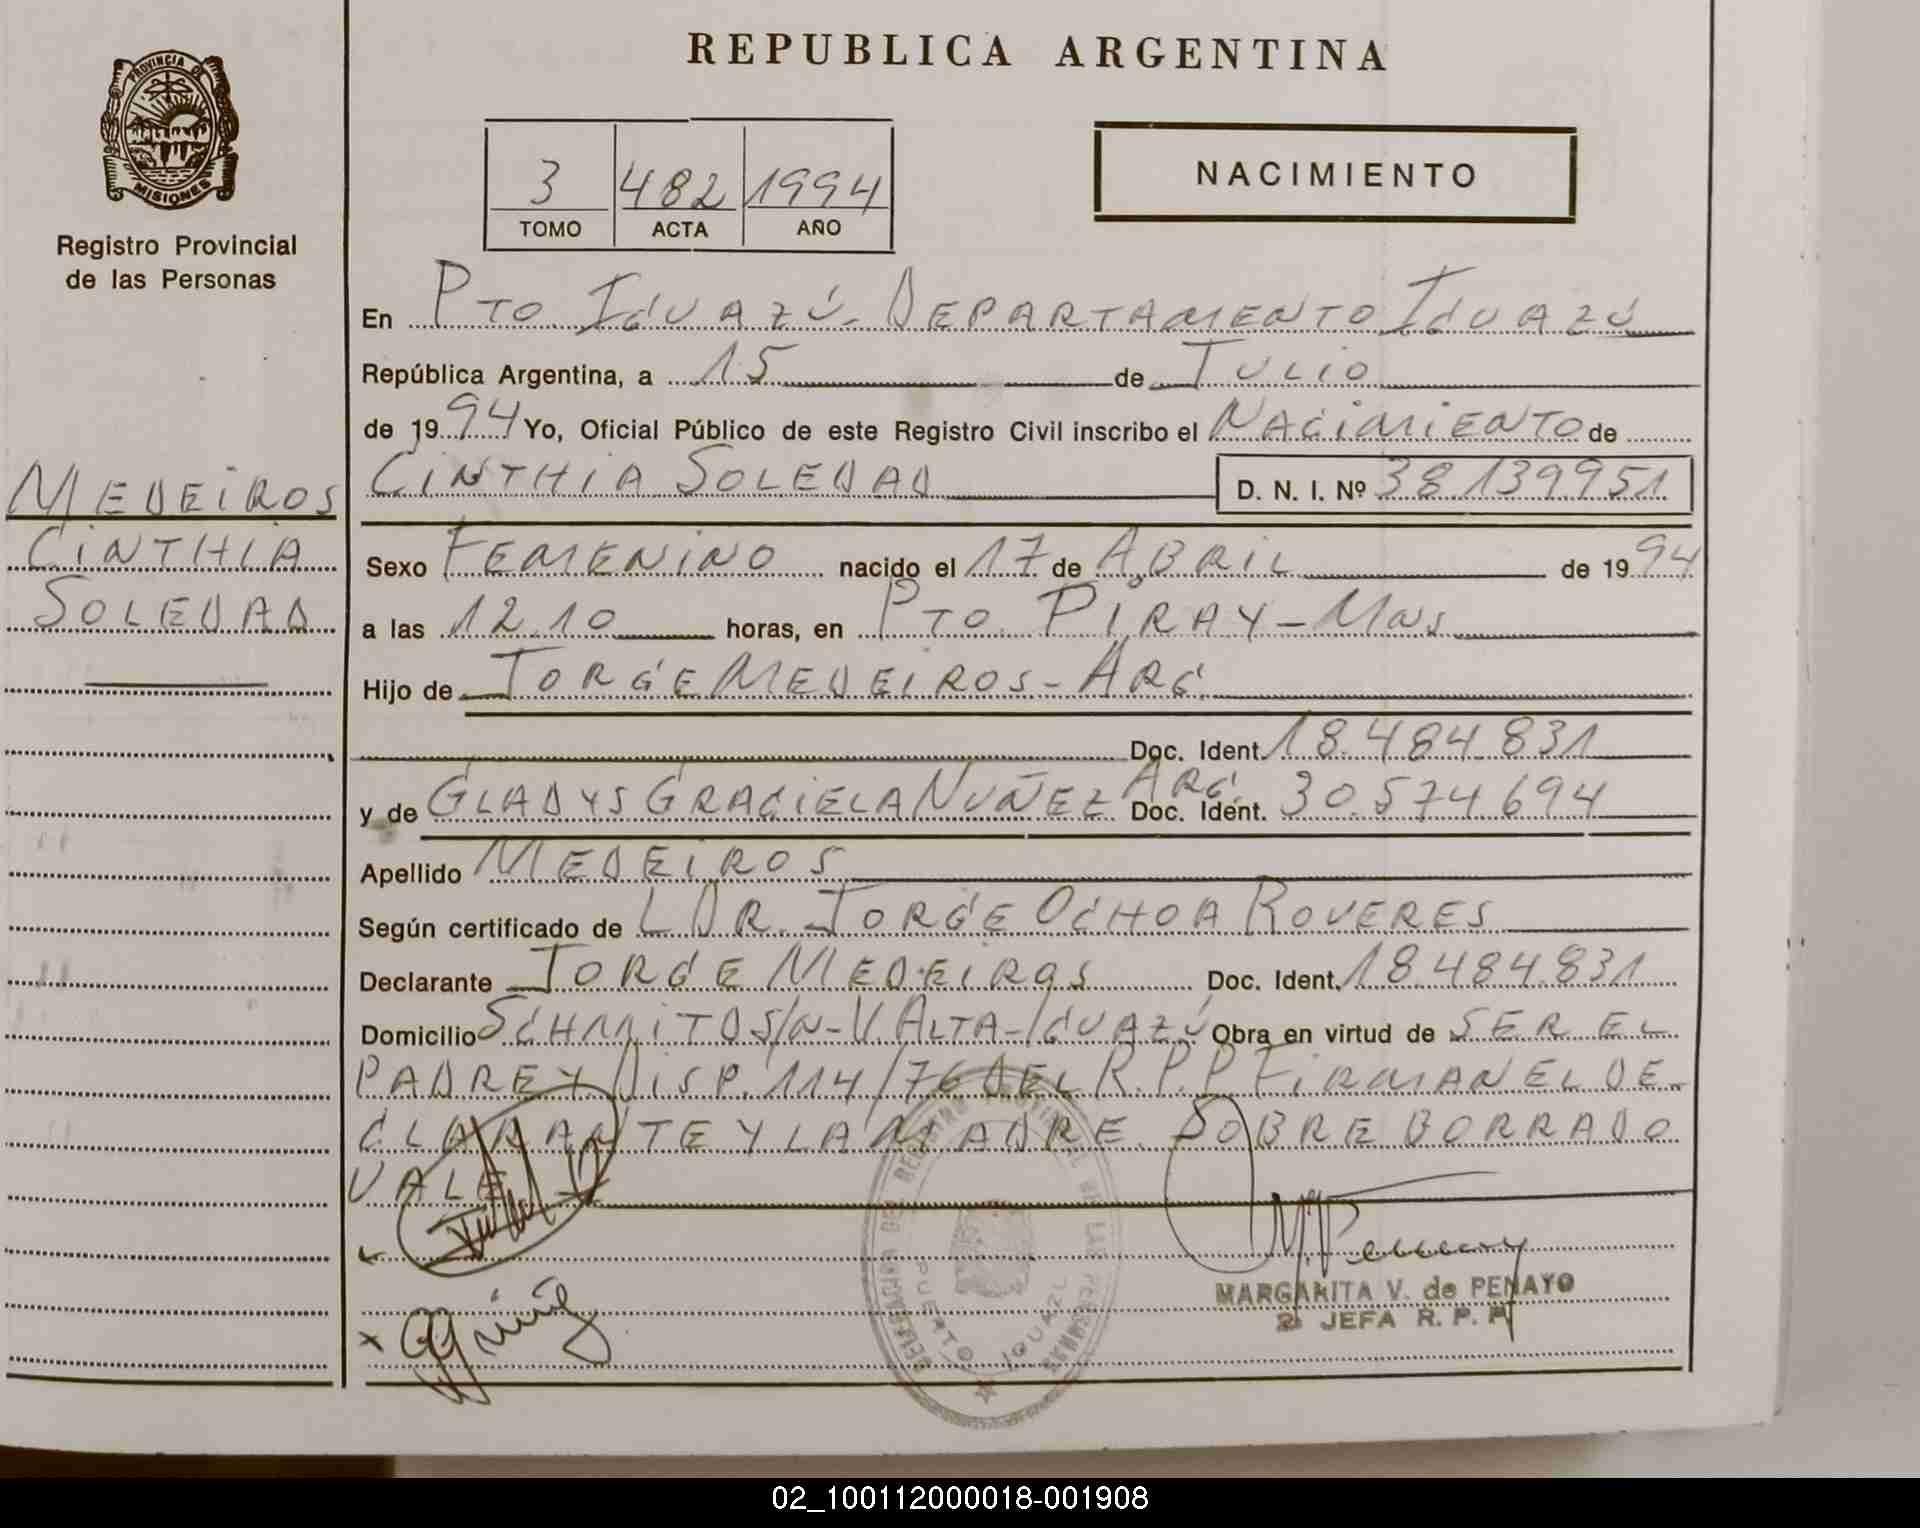 REPUBLICA ARGENTINA
PROVINCIA DE
MISIONES
Registro Provincial
de las Personas
3 482 1994
TOMO ACTA AÑO
NACIMIENTO
En Pto. Iguazú - Departamento Iguazú
República Argentina, a 15 de Julio
de 1994 Yo, Oficial Público de este Registro Civil inscribo el Nacimiento de
Cinthia Soledad D. N. I. Nº 38.139.951
Medeiros
Cinthia
Soledad
Sexo Femenino nacido el 17 de Abril de 1994
a las 12.10 horas, en Pto. Piray - Mns
Hijo de Jorge Medeiros - Arg.
Doc. Ident. 18.484.831
y de Gladys Graciela Nuñez Arg. Doc. Ident. 30.574.694
Apellido Medeiros
Según certificado de L Dr. Jorge Ochoa Roveres
Declarante Jorge Medeiros Doc. Ident. 18.484.831
Domicilio Schmitd S/N - V. Alta - Iguazú Obra en virtud de ser el
padre y Disp. 114/76 del R.P.P Firman el de
clarante y la madre. Sobre borrado
vale
DELEGACIÓN DEL REGISTRO PROVINCIAL DE LAS PERSONAS
PUERTO IGUAZU
MARGARITA V. de PENAYO
2 JEFA R. P. P.
02_100112000018-001908